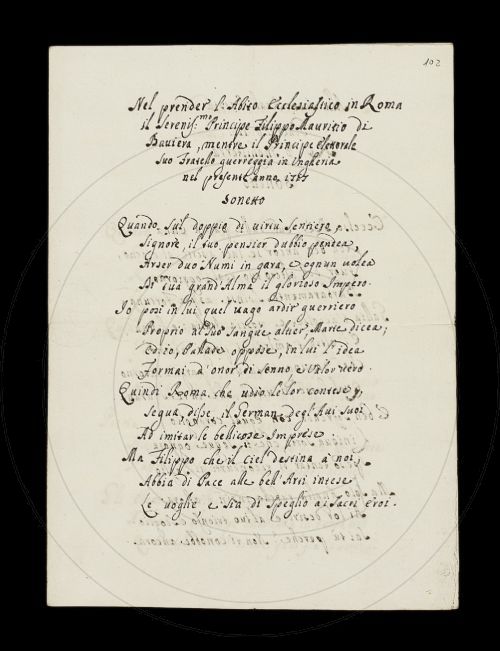 102
Nel prender l'Abito Ecclesiastico in Roma
il Serenis:mo Principe Filippo Mauritio di
Baviera, mentre il Principe Elettorale
Suo Fratello guerreggia in Ungheria
nel presente anno 1717
Sonetto
Quando sul doppio di virtù sentiero,
Signore, il tuo pensier dubbio pendea,
Arser duo Numi in gara, e ognun volea
Di tua grand'Alma il glorioso Impero.
Io posi in lui quel vago ardir guerriero
Proprio al suo sangue alter, Marte dicea;
Ed io, Pallade oppose, in lui l'idea
Formai d'onor, di senno, e valor vero.
Quindi Roma, che udio le lor contese,
Segua, disse, il German degl'Avi suoi
Ad imitar le bellicose Imprese.
Ma Filippo che il ciel destina a noi,
Abbia di Pace alle bell'Arti intese
Le voglie, e sia di speglio ai Sacri Eroi.